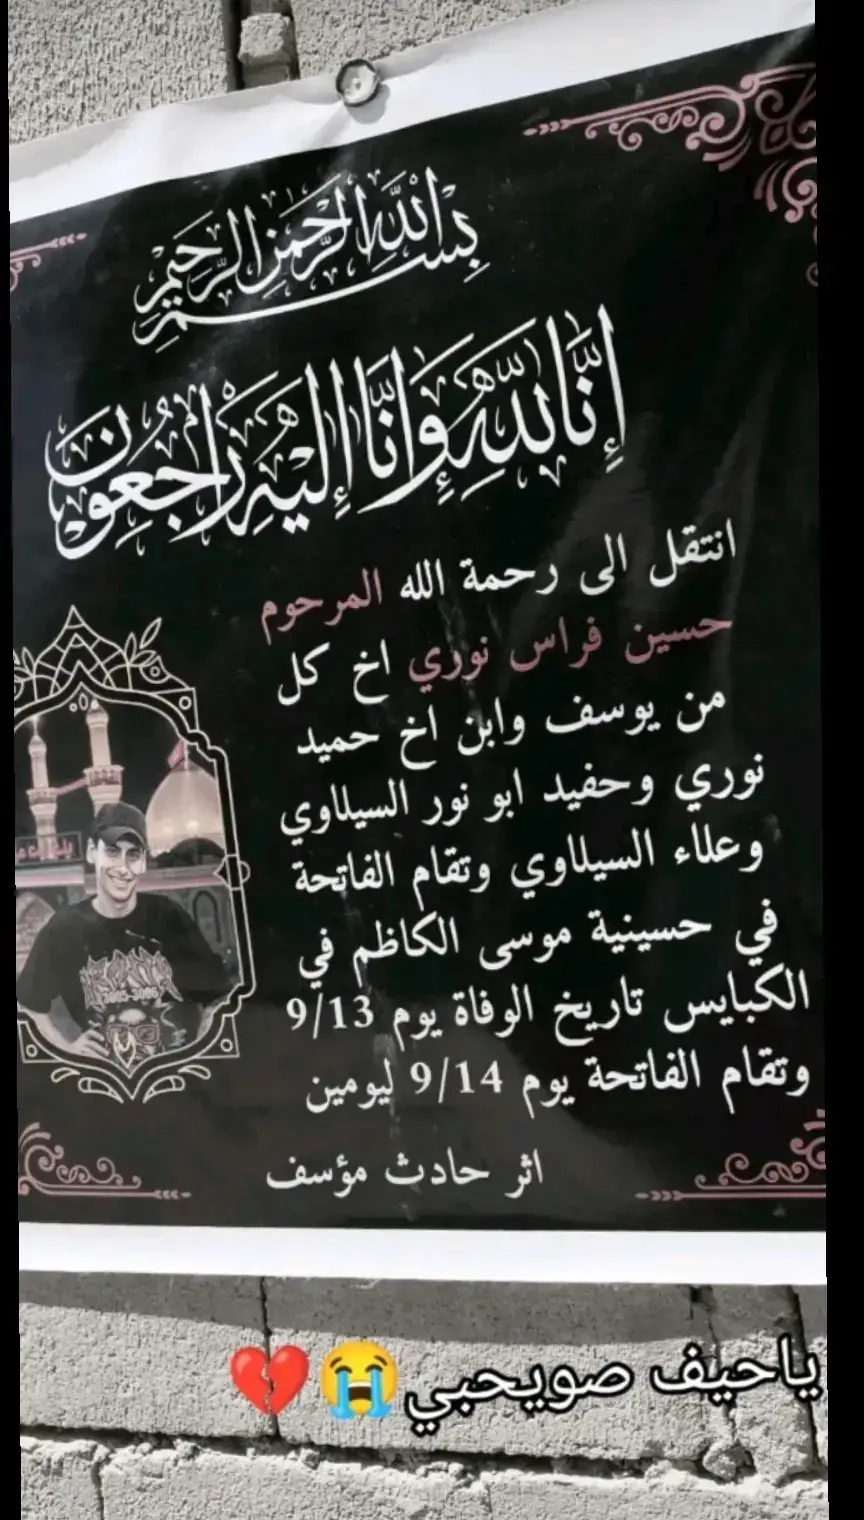 بسم الله الرحمن الرحيم
إنا لله وإنا إليه راجعون
انتقل الى رحمة الله المرحوم
حسين فراس نوري اخ كل
من يوسف وابن اخ حميد
نوري وحفيد ابو نور السيلاوي
وعلاء السيلاوي وتقام الفاتحة
في حسينية موسى الكاظم في
الكبايس تاريخ الوفاة يوم 9/13
وتقام الفاتحة يوم 9/14 ليومين
اثر حادث مؤسف
ياحيف صويحبي😭💔